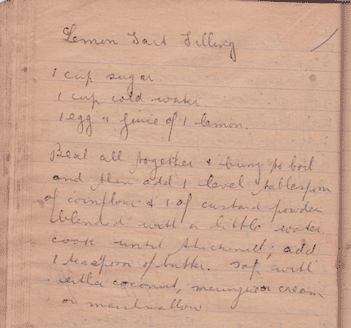 Lemon Tart Filling
1 cup sugar
1 cup cold water
1 egg & juice of 1 lemon.
Beat all together & bring to boil
and then add 1 level tablespoon
of cornflour & 1 of custard powder
blended with a little water
cook until thickened, add
1 teaspoon of butter. Top with
either coconut, meringue or cream
or marshmallow